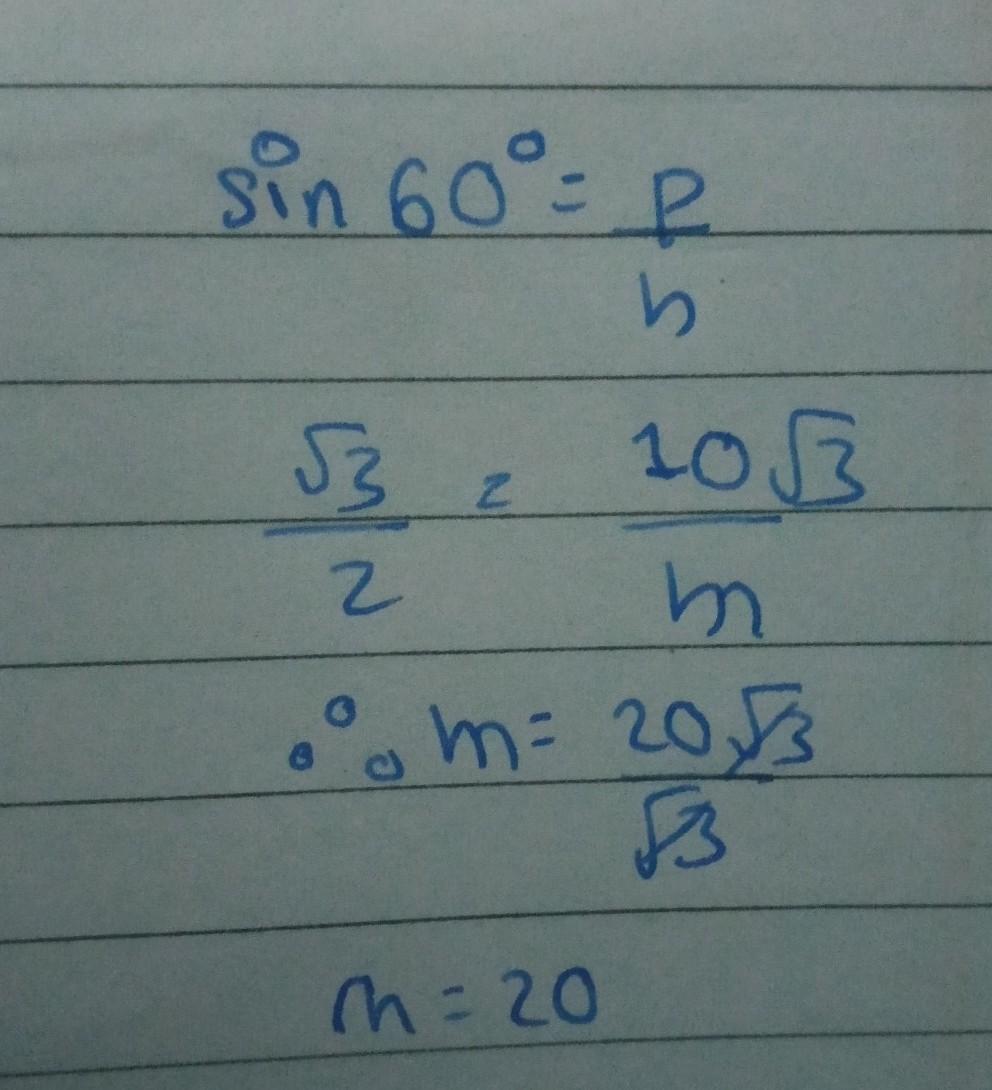 sin 60° = p/h
√3/2 = 10√3/m
∴ m = 20√3/√3
m = 20